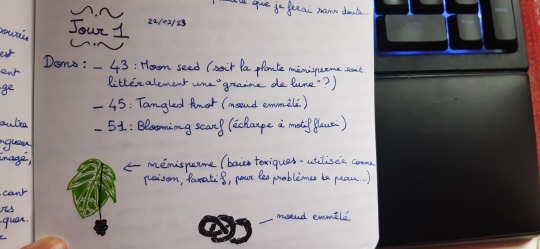 que je ferai sans doute.
Jour 1
22/02/23
Dons : - 43 : Moon seed (soit la plante ménisperme soit
littéralement une "graine de lune" ?)
- 45 : Tangled knot (nœud emmêlé)
- 51 : Blooming scarf (écharpe à motif fleuri)
ménisperme (baies toxiques - utilisée comme
poison, laxatif, pour les problèmes de peau...)
nœud emmêlé